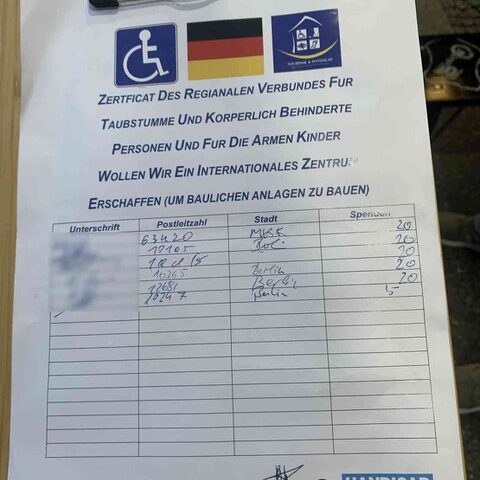 TOURISME & HANDICAP
ZERTFICAT DES REGIANALEN VERBUNDES FUR
TAUBSTUMME UND KORPERLICH BEHINDERTE
PERSONEN UND FUR DIE ARMEN KINDER
WOLLEN WIR EIN INTERNATIONALES ZENTRUM
ERSCHAFFEN (UM BAULICHEN ANLAGEN ZU BAUEN)
Unterschrift Postleitzahl Stadt Spenden
63420 MKK 20
20
20
10365 Berlin 20
Berlin 20
20247 Berlin 5
HANDICAP